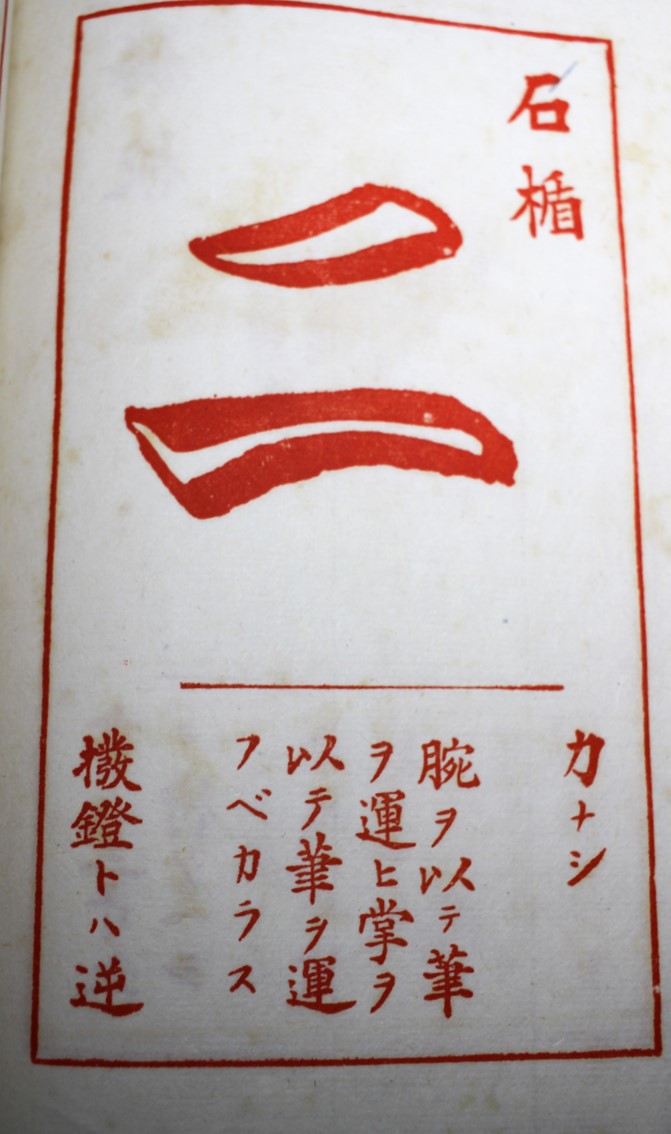 石楯
二
力トシ
腕ヲ以テ筆
ヲ運ヒ掌ヲ
以テ筆ヲ運
フベカラス
撥鐙トハ逆